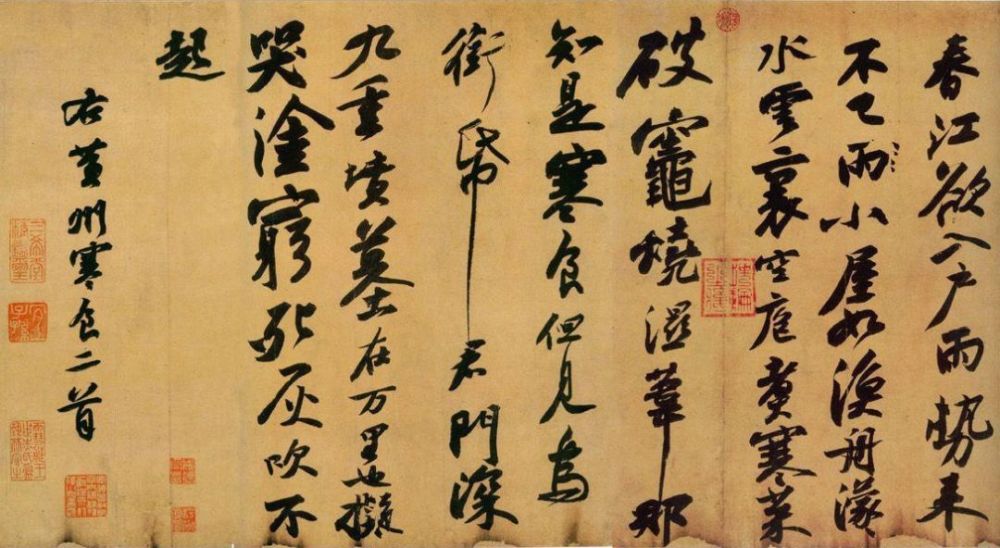 春江欲入戶雨勢來
不已雨小屋如漁舟濛〻
水雲裏空庖煮寒菜
破竈燒濕葦那
知是寒食但見烏
銜帋君門深
九重墳墓在万里也擬
哭塗窮死灰吹不
起
右黃州寒食二首